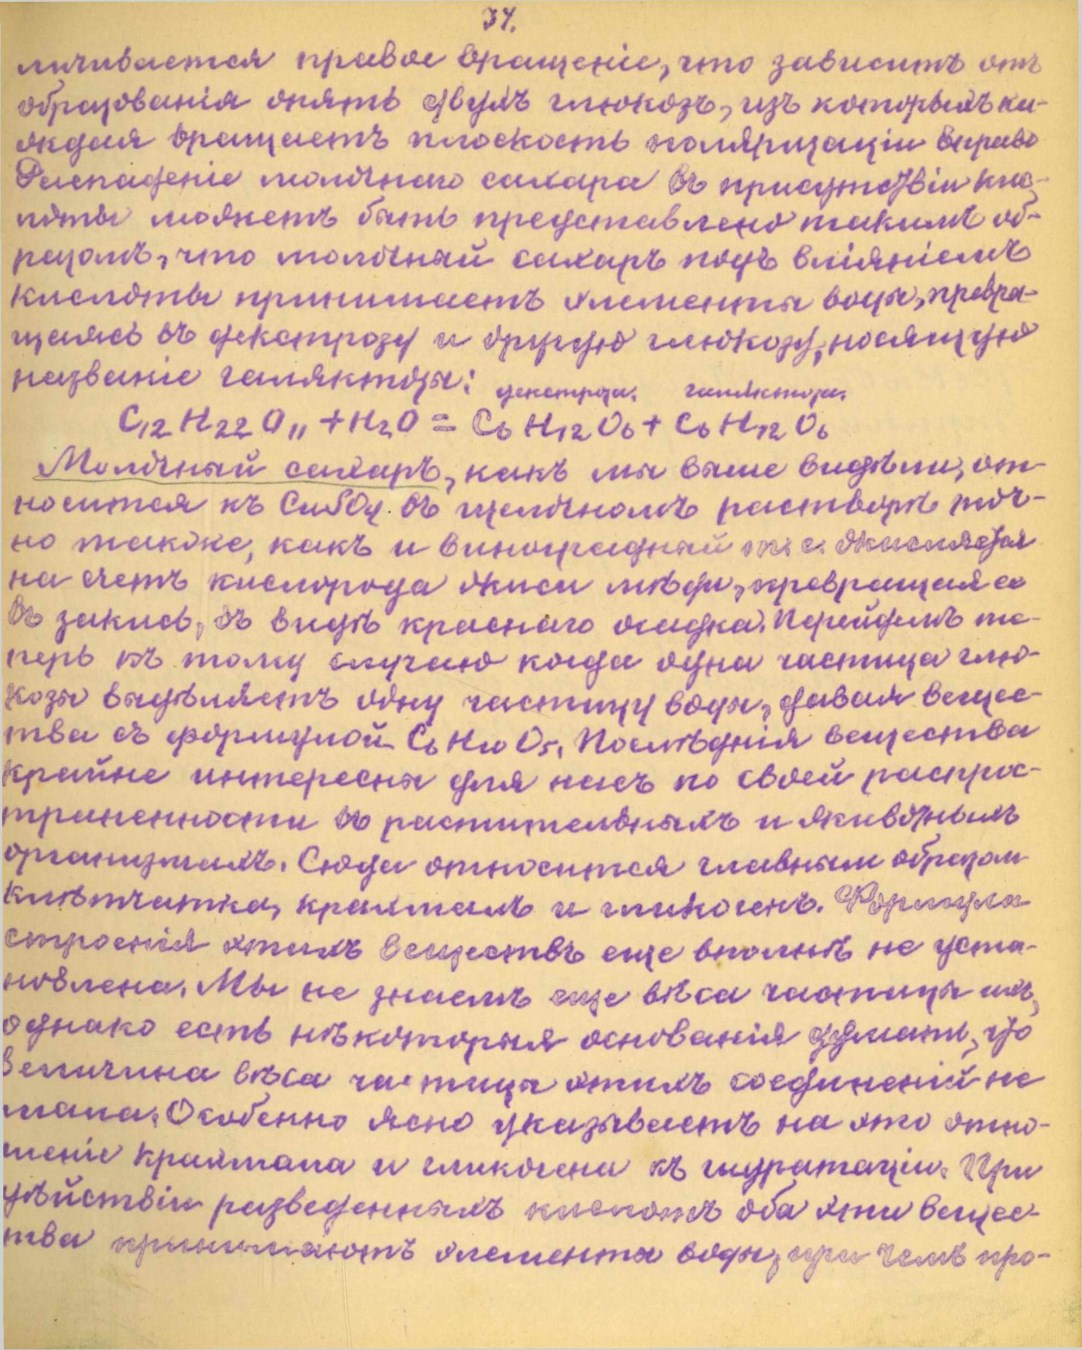 34.
личивается правое вращеніе, что зависитъ отъ
образованія опять двухъ глюкозъ, изъ которыхъ ка-
ждая вращаетъ плоскость поляризаціи вправо
Распаденіе молочнаго сахара въ присутствіи кис-
лоты можетъ быть представлено такимъ об-
разомъ, что молочный сахаръ подъ вліяніемъ
кислоты принимаетъ элементы воды, превра-
щаясь въ декстрозу и другую глюкозу, носящую
названіе галяктозы: декстроза. галяктоза.
C12 H22 O11 + H2O = C6 H12 O6 + C6 H12 O6
Молочный сахаръ, какъ мы выше видѣли, от-
носится къ CuSO4 въ щелочномъ растворѣ точ-
но также, какъ и виноградный т. е. окисляется
на счетъ кислорода окиси мѣди, превращая ее
въ закись, въ видѣ краснаго осадка. Перейдемъ те-
перь къ тому случаю когда одна частица глю-
козы выдѣляетъ одну частицу воды, давая вещес-
тва съ формулой C6 H10 O5. Послѣднія вещества
крайне интересны для насъ по своей распрос-
траненности въ растительныхъ и животныхъ
организмахъ. Сюда относится главнымъ образомъ
клѣтчатка, крахмалъ и гликогенъ. Формула
строенія этихъ веществъ еще вполнѣ не уста-
новлена. Мы не знаемъ еще вѣса частицы ихъ,
однако есть нѣкоторыя основанія думать, что
величина вѣса частицы этихъ соединеній не
мала. Особенно ясно указываетъ на это отно-
шеніе крахмала и гликогена къ гидратаціи. При
дѣйствіи разведенныхъ кислотъ оба эти вещес-
тва принимаютъ элементы воды, при чемъ про-